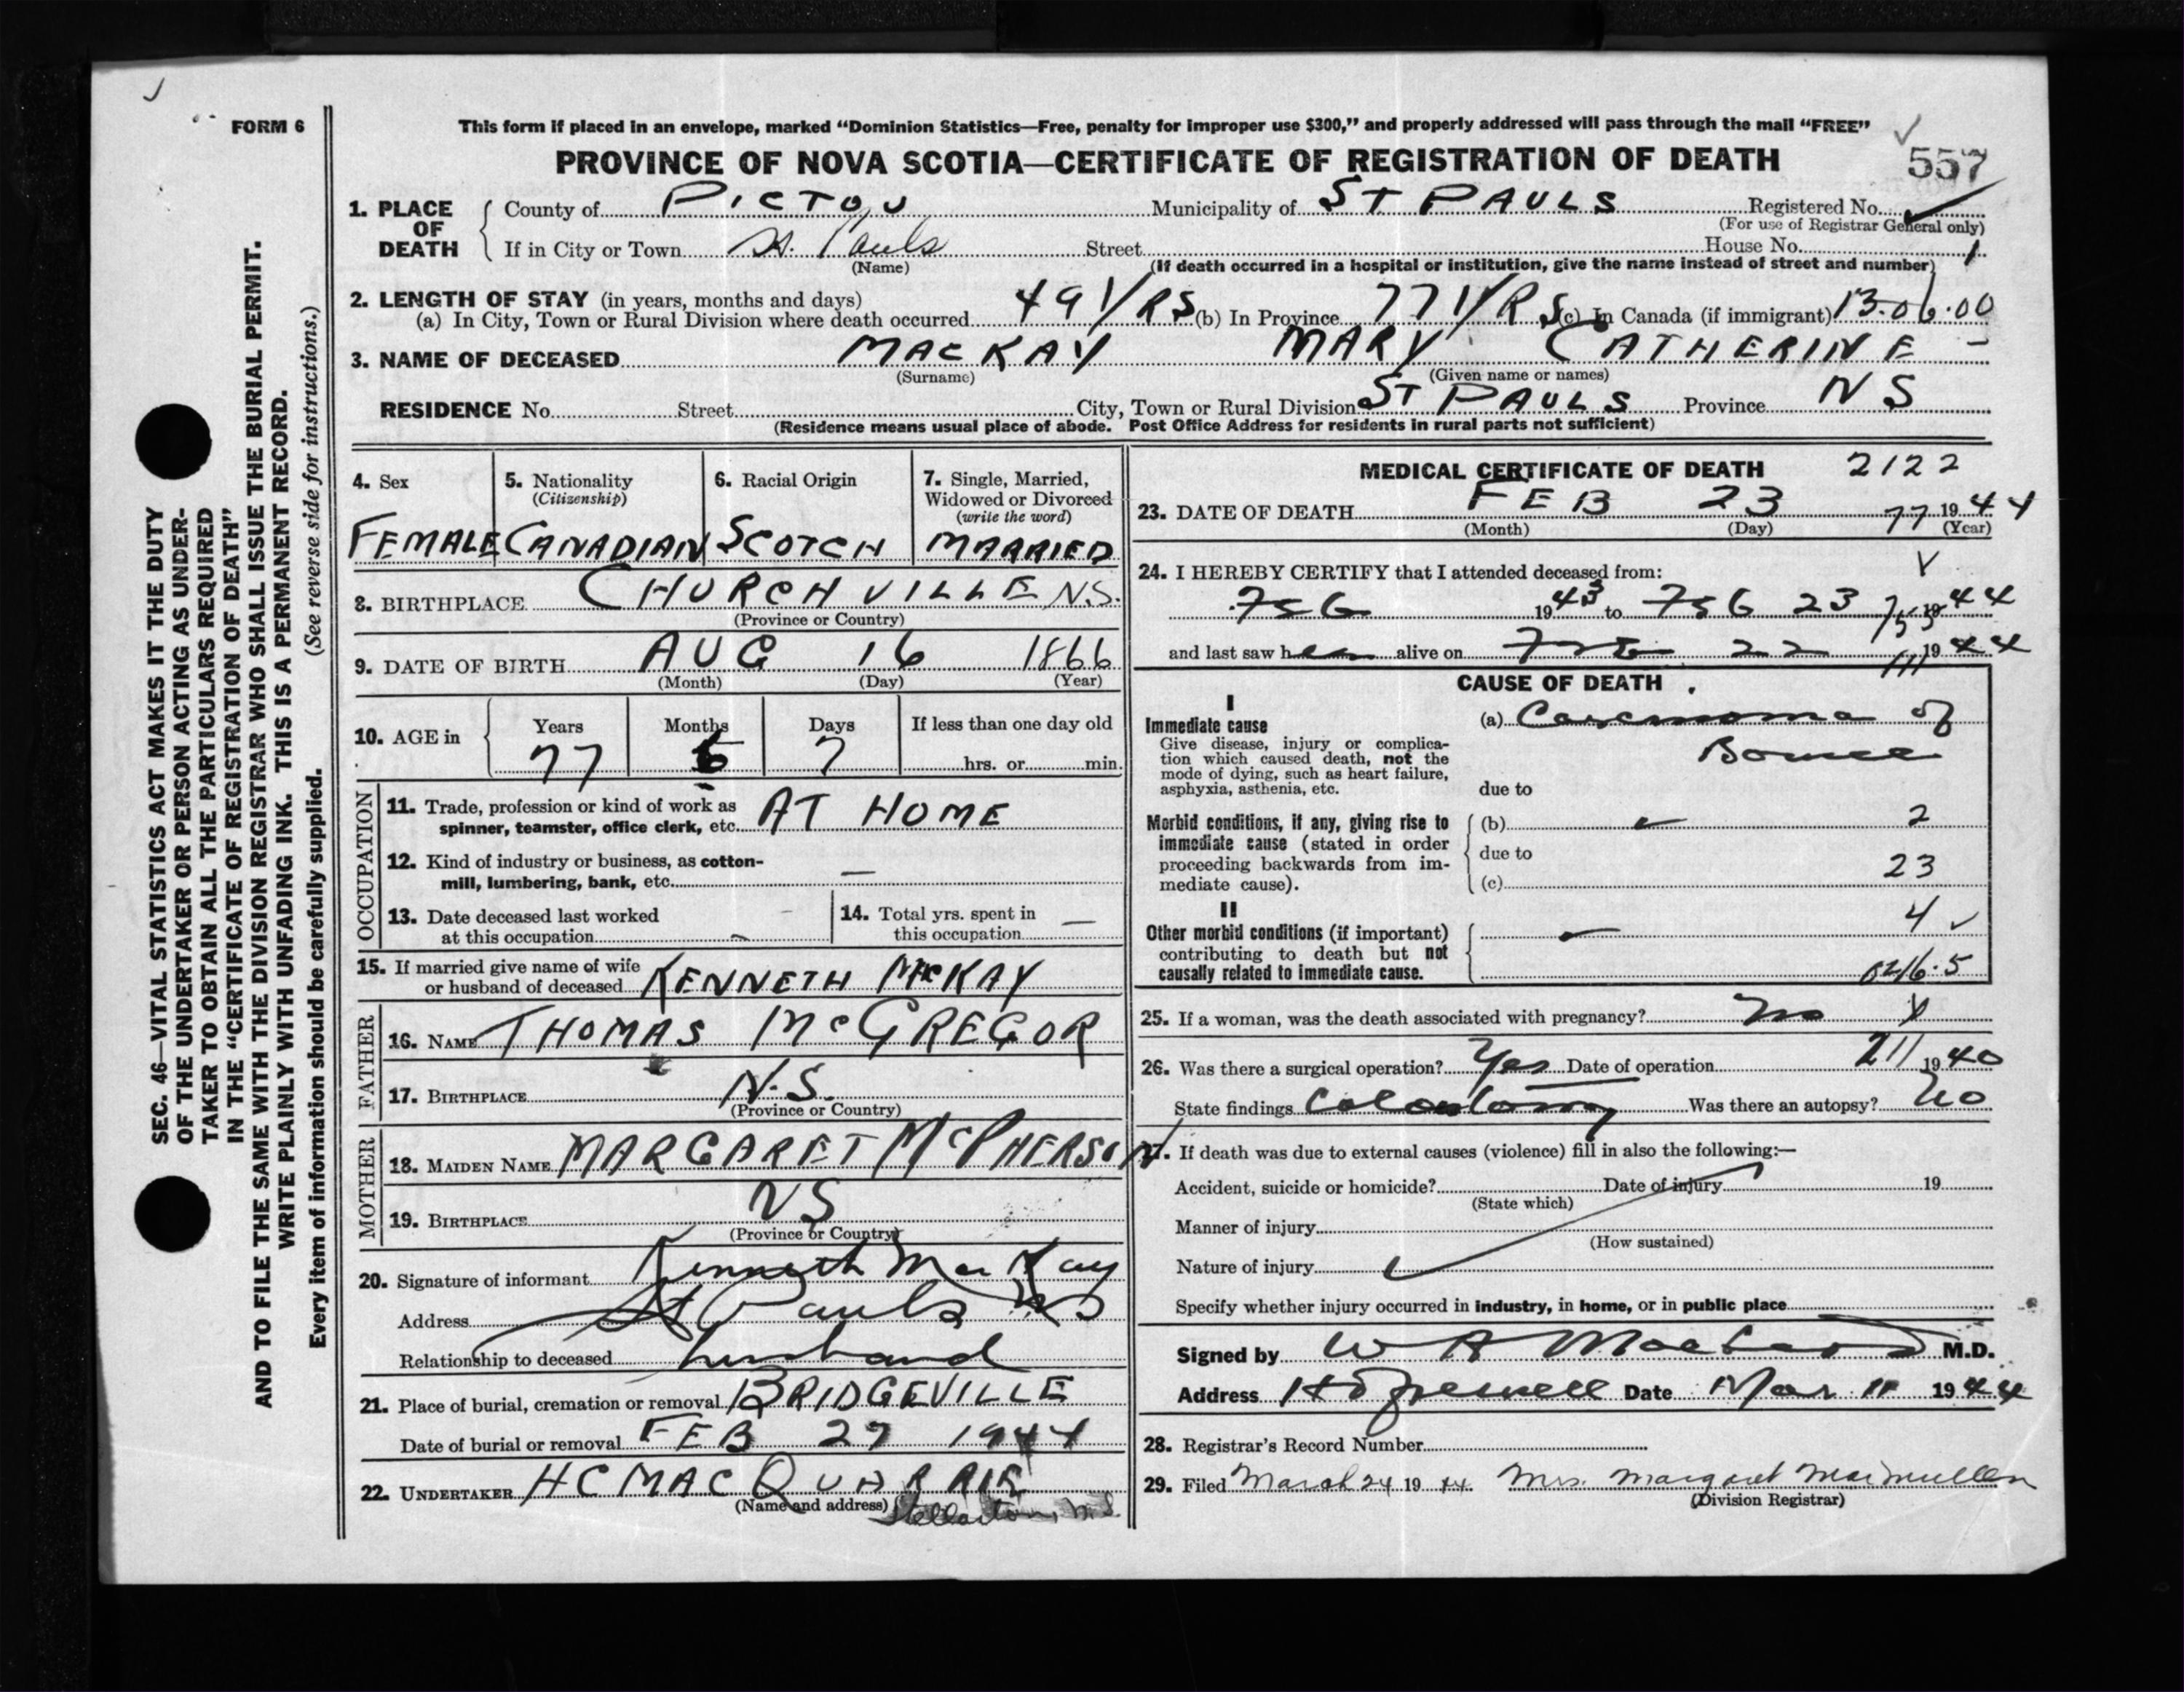 FORM 6
This form if placed in an envelope, marked “Dominion Statistics—Free, penalty for improper use $300,” and properly addressed will pass through the mail “FREE”
PROVINCE OF NOVA SCOTIA—CERTIFICATE OF REGISTRATION OF DEATH
557
1. PLACE OF DEATH
County of PICTOU Municipality of ST PAULS Registered No.
(For use of Registrar General only)
If in City or Town St. Pauls Street House No.
(Name) (If death occurred in a hospital or institution, give the name instead of street and number)
2. LENGTH OF STAY (in years, months and days)
(a) In City, Town or Rural Division where death occurred 49 YRS (b) In Province 77 YRS (c) In Canada (if immigrant) 13.06.00
3. NAME OF DECEASED MACKAY MARY CATHERINE
(Surname) (Given name or names)
RESIDENCE No. Street City, Town or Rural Division ST PAULS Province NS
(Residence means usual place of abode. Post Office Address for residents in rural parts not sufficient)
4. Sex
FEMALE
5. Nationality
(Citizenship)
CANADIAN
6. Racial Origin
SCOTCH
7. Single, Married,
Widowed or Divorced
(write the word)
MARRIED
8. BIRTHPLACE CHURCHVILLE N.S.
(Province or Country)
9. DATE OF BIRTH AUG 16 1866
(Month) (Day) (Year)
10. AGE in
Years Months Days If less than one day old
77 6 7 hrs. or min.
OCCUPATION
11. Trade, profession or kind of work as
spinner, teamster, office clerk, etc. AT HOME
12. Kind of industry or business, as cotton-
mill, lumbering, bank, etc. —
13. Date deceased last worked
at this occupation –
14. Total yrs. spent in
this occupation —
15. If married give name of wife
or husband of deceased KENNETH McKAY
FATHER
16. NAME THOMAS McGREGOR
17. BIRTHPLACE N.S.
(Province or Country)
MOTHER
18. MAIDEN NAME MARGARET McPHERSON
19. BIRTHPLACE NS
(Province or Country)
20. Signature of informant Kenneth MacKay
Address St Pauls NS
Relationship to deceased husband
21. Place of burial, cremation or removal BRIDGEVILLE
Date of burial or removal FEB 27 1944
22. UNDERTAKER HC MACQUARRIE
(Name and address) Stellarton, N.S.
MEDICAL CERTIFICATE OF DEATH 2122
23. DATE OF DEATH FEB 23 77 1944
(Month) (Day) (Year)
24. I HEREBY CERTIFY that I attended deceased from:
Feb 1943 to Feb 23 1944
and last saw her alive on Feb 22 1944
CAUSE OF DEATH
I
Immediate cause
Give disease, injury or complica-
tion which caused death, not the
mode of dying, such as heart failure,
asphyxia, asthenia, etc.
(a) Carcinoma of
Bowel
due to
Morbid conditions, if any, giving rise to
immediate cause (stated in order
proceeding backwards from im-
mediate cause).
(b) 2
due to
23
(c)
II
Other morbid conditions (if important)
contributing to death but not
causally related to immediate cause.
4
25. If a woman, was the death associated with pregnancy? No
26. Was there a surgical operation? Yes Date of operation 1940
State findings Colostomy Was there an autopsy? No
27. If death was due to external causes (violence) fill in also the following:—
Accident, suicide or homicide? Date of injury 19
(State which)
Manner of injury
(How sustained)
Nature of injury
Specify whether injury occurred in industry, in home, or in public place
Signed by W A MacLeod M.D.
Address Hopewell Date Mar 11 1944
28. Registrar's Record Number
29. Filed March 24 19 44. Mrs. Margaret MacMullen
(Division Registrar)
SEC. 46—VITAL STATISTICS ACT MAKES IT THE DUTY
OF THE UNDERTAKER OR PERSON ACTING AS UNDER-
TAKER TO OBTAIN ALL THE PARTICULARS REQUIRED
IN THE “CERTIFICATE OF REGISTRATION OF DEATH”
AND TO FILE THE SAME WITH THE DIVISION REGISTRAR WHO SHALL ISSUE THE BURIAL PERMIT.
WRITE PLAINLY WITH UNFADING INK. THIS IS A PERMANENT RECORD.
Every item of information should be carefully supplied. (See reverse side for instructions.)